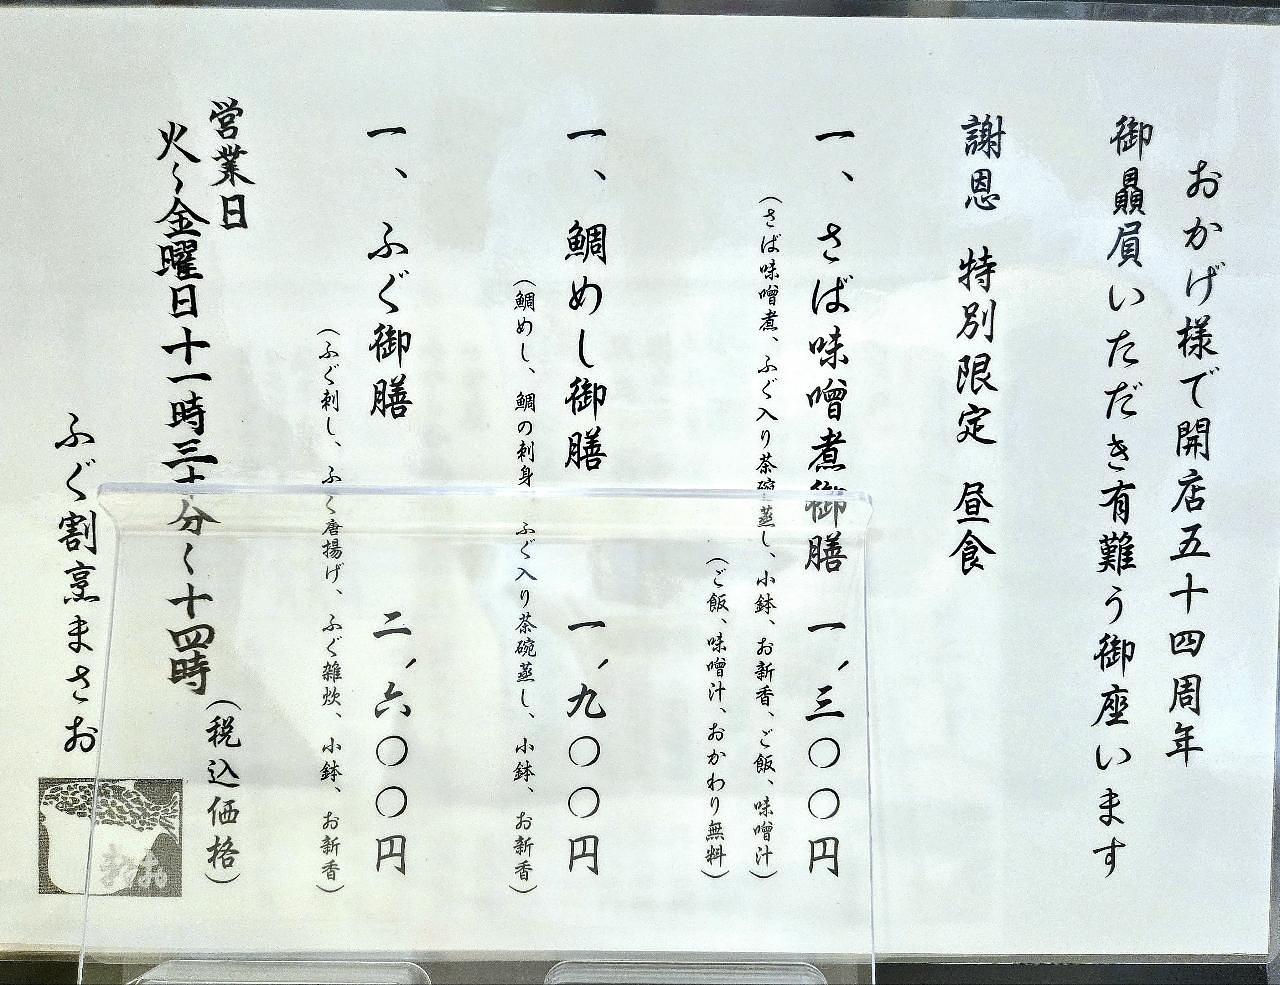 おかげ様で開店五十四周年
御贔屓いただき有難う御座います
謝恩　特別限定　昼食
一、さば味噌煮御膳　一、三〇〇円
（さば味噌煮、ふぐ入り茶碗蒸し、小鉢、お新香、ご飯、味噌汁）
（ご飯、味噌汁、おかわり無料）
一、鯛めし御膳　一、九〇〇円
（鯛めし、鯛の刺身、ふぐ入り茶碗蒸し、小鉢、お新香）
一、ふぐ御膳　二、六〇〇円
（ふぐ刺し、ふぐ唐揚げ、ふぐ雑炊、小鉢、お新香）
営業日
（税込価格）
火〜金曜日十一時三十分〜十四時
ふぐ割烹まさお
まさお